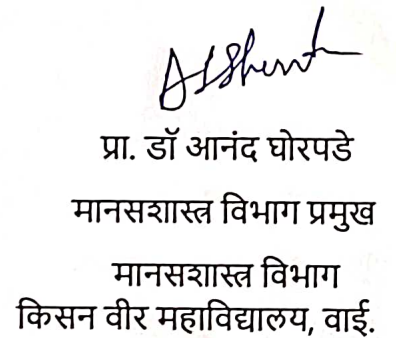 प्रा. डॉ आनंद घोरपडे
मानसशास्त्र विभाग प्रमुख
मानसशास्त्र विभाग
किसन वीर महाविद्यालय, वाई.